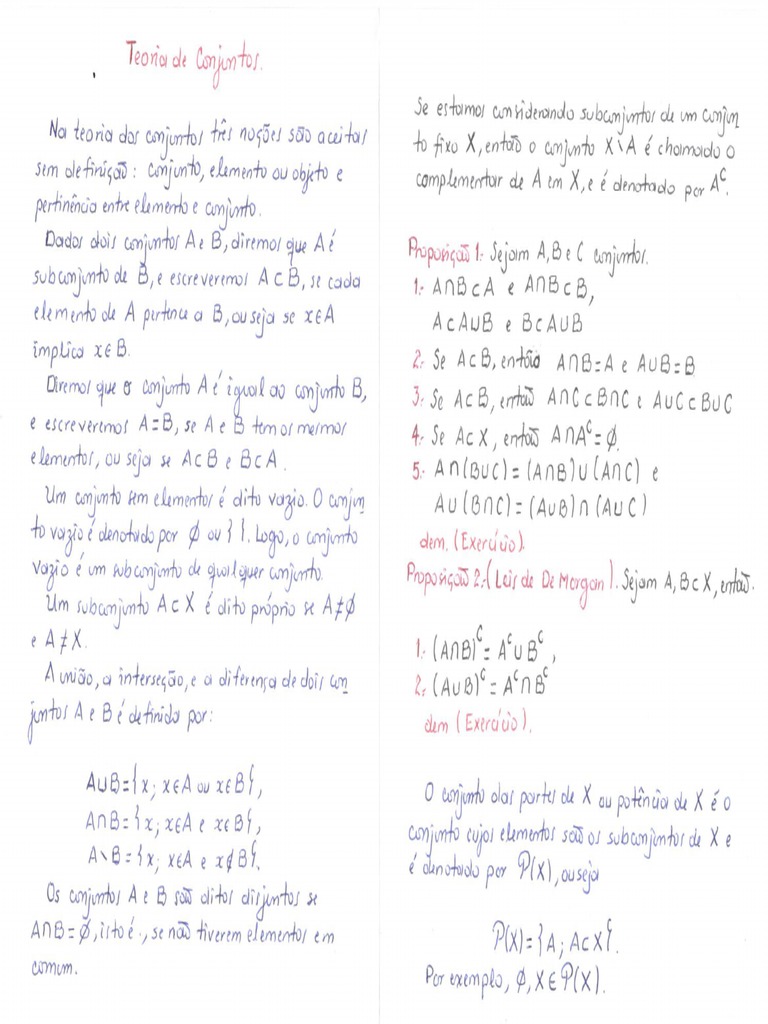 Teoria de Conjuntos.
Na teoria dos conjuntos três noções são aceitas
sem definição: conjunto, elemento ou objeto e
pertinência entre elemento e conjunto.
Dados dois conjuntos A e B, diremos que A é
subconjunto de B, e escreveremos A⊂B, se cada
elemento de A pertence a B, ou seja se x∈A
implica x∈B.
Diremos que o conjunto A é igual ao conjunto B,
e escreveremos A=B, se A e B tem os mesmos
elementos, ou seja se A⊂B e B⊂A.
Um conjunto sem elementos é dito vazio. O conjun
to vazio é denotado por ∅ ou { }. Logo, o conjunto
vazio é um subconjunto de qualquer conjunto.
Um subconjunto A⊂X é dito próprio se A≠∅
e A≠X.
A união, a interseção, e a diferença de dois con
juntos A e B é definida por:
A∪B={x; x∈A ou x∈B},
A∩B={x; x∈A e x∈B},
A∖B={x; x∈A e x∉B}.
Os conjuntos A e B são ditos disjuntos se
A∩B=∅, isto é., se não tiverem elementos em
comum.
Se estamos considerando subconjuntos de um conjun
to fixo X, então o conjunto X∖A é chamado o
complementar de A em X, e é denotado por Aᶜ.
Proposição 1.- Sejam A, B e C conjuntos.
1.- A∩B⊂A e A∩B⊂B,
A⊂A∪B e B⊂A∪B
2.- Se A⊂B, então A∩B=A e A∪B=B
3.- Se A⊂B, então A∩C⊂B∩C e A∪C⊂B∪C
4.- Se A⊂X, então A∩Aᶜ=∅.
5.- A∩(B∪C)=(A∩B)∪(A∩C) e
A∪(B∩C)=(A∪B)∩(A∪C)
dem. (Exercício).
Proposição 2.-(Leis de De Morgan). Sejam A, B⊂X, então.
1.- (A∩B)ᶜ=Aᶜ∪Bᶜ,
2.- (A∪B)ᶜ=Aᶜ∩Bᶜ
dem (Exercício).
O conjunto das partes de X ou potência de X é o
conjunto cujos elementos são os subconjuntos de X e
é denotado por P(X), ou seja
P(X)={A; A⊂X}.
Por exemplo, ∅, X∈P(X).